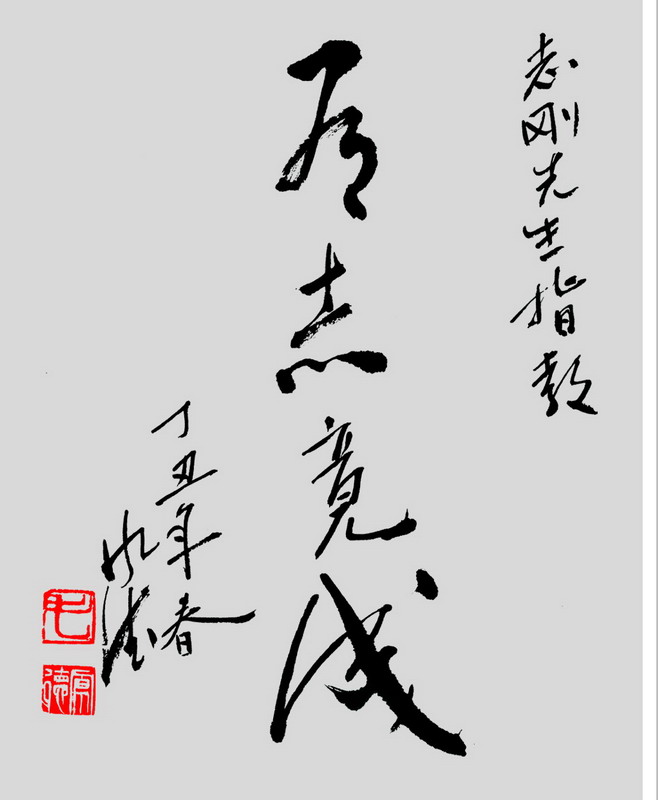 志刚先生指教
有志竟成
丁丑年春